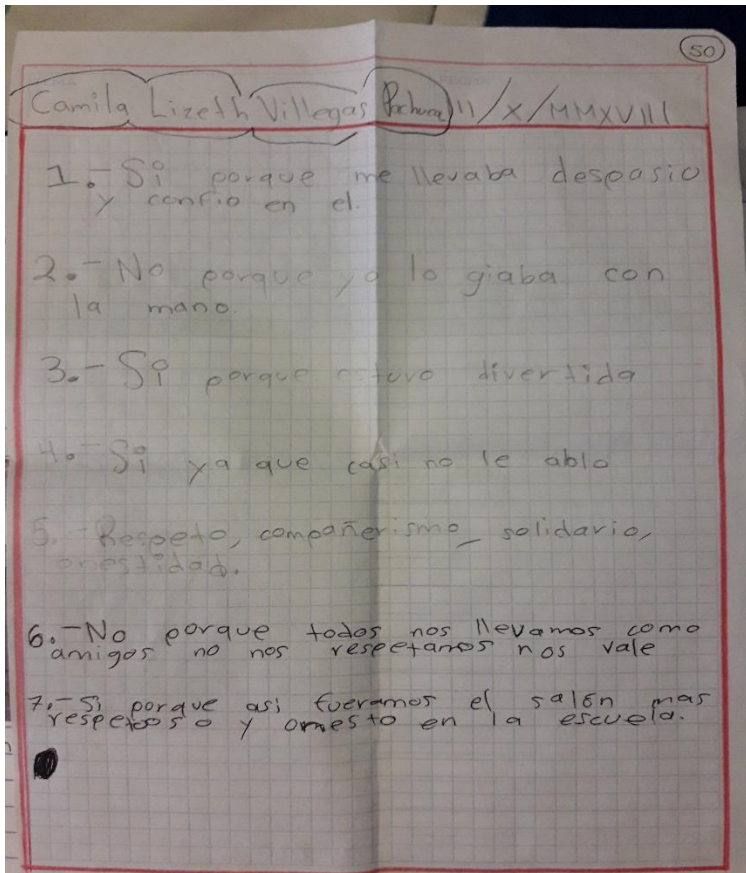 50
Camila Lizeth Villegas Pachuca 11/X/MMXVIII
1.- Si porque me llevaba despasio
y confio en el.
2.- No porque yo lo giaba con
la mano.
3.- Si porque estuvo divertida
4.- Si ya que casi no le ablo
5.- Respeto, compañerismo, solidario,
onestidad.
6.- No porque todos nos llevamos como
amigos no nos respetamos nos vale
7.- Si porque asi fueramos el salón mas
respetooso y onesto en la escuela.